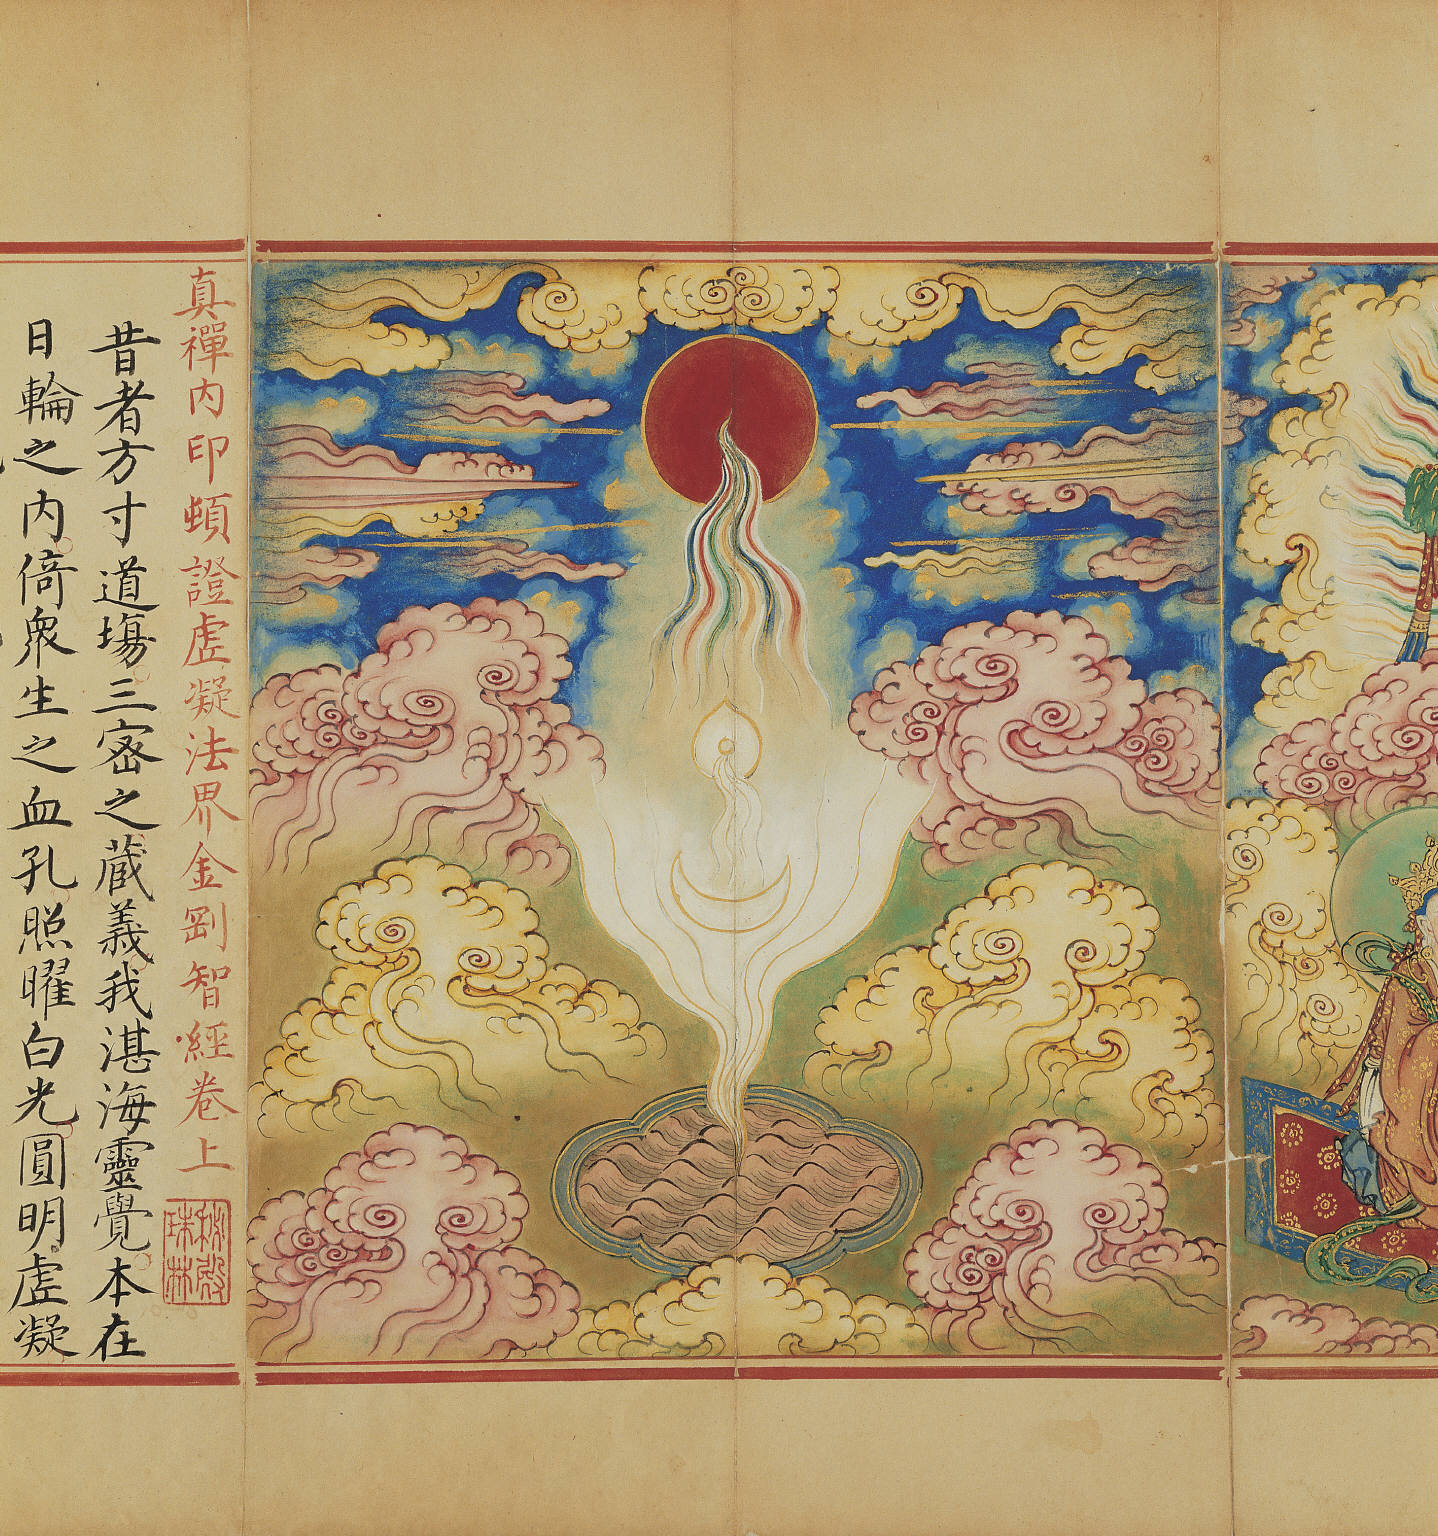 真禪內印頓證虛凝法界金剛智經卷上
昔者方寸道場三密之蔵義我湛海靈覺本在
日輪之内倚衆生之血孔照曜白光圓明虛凝
秘殿
珠林